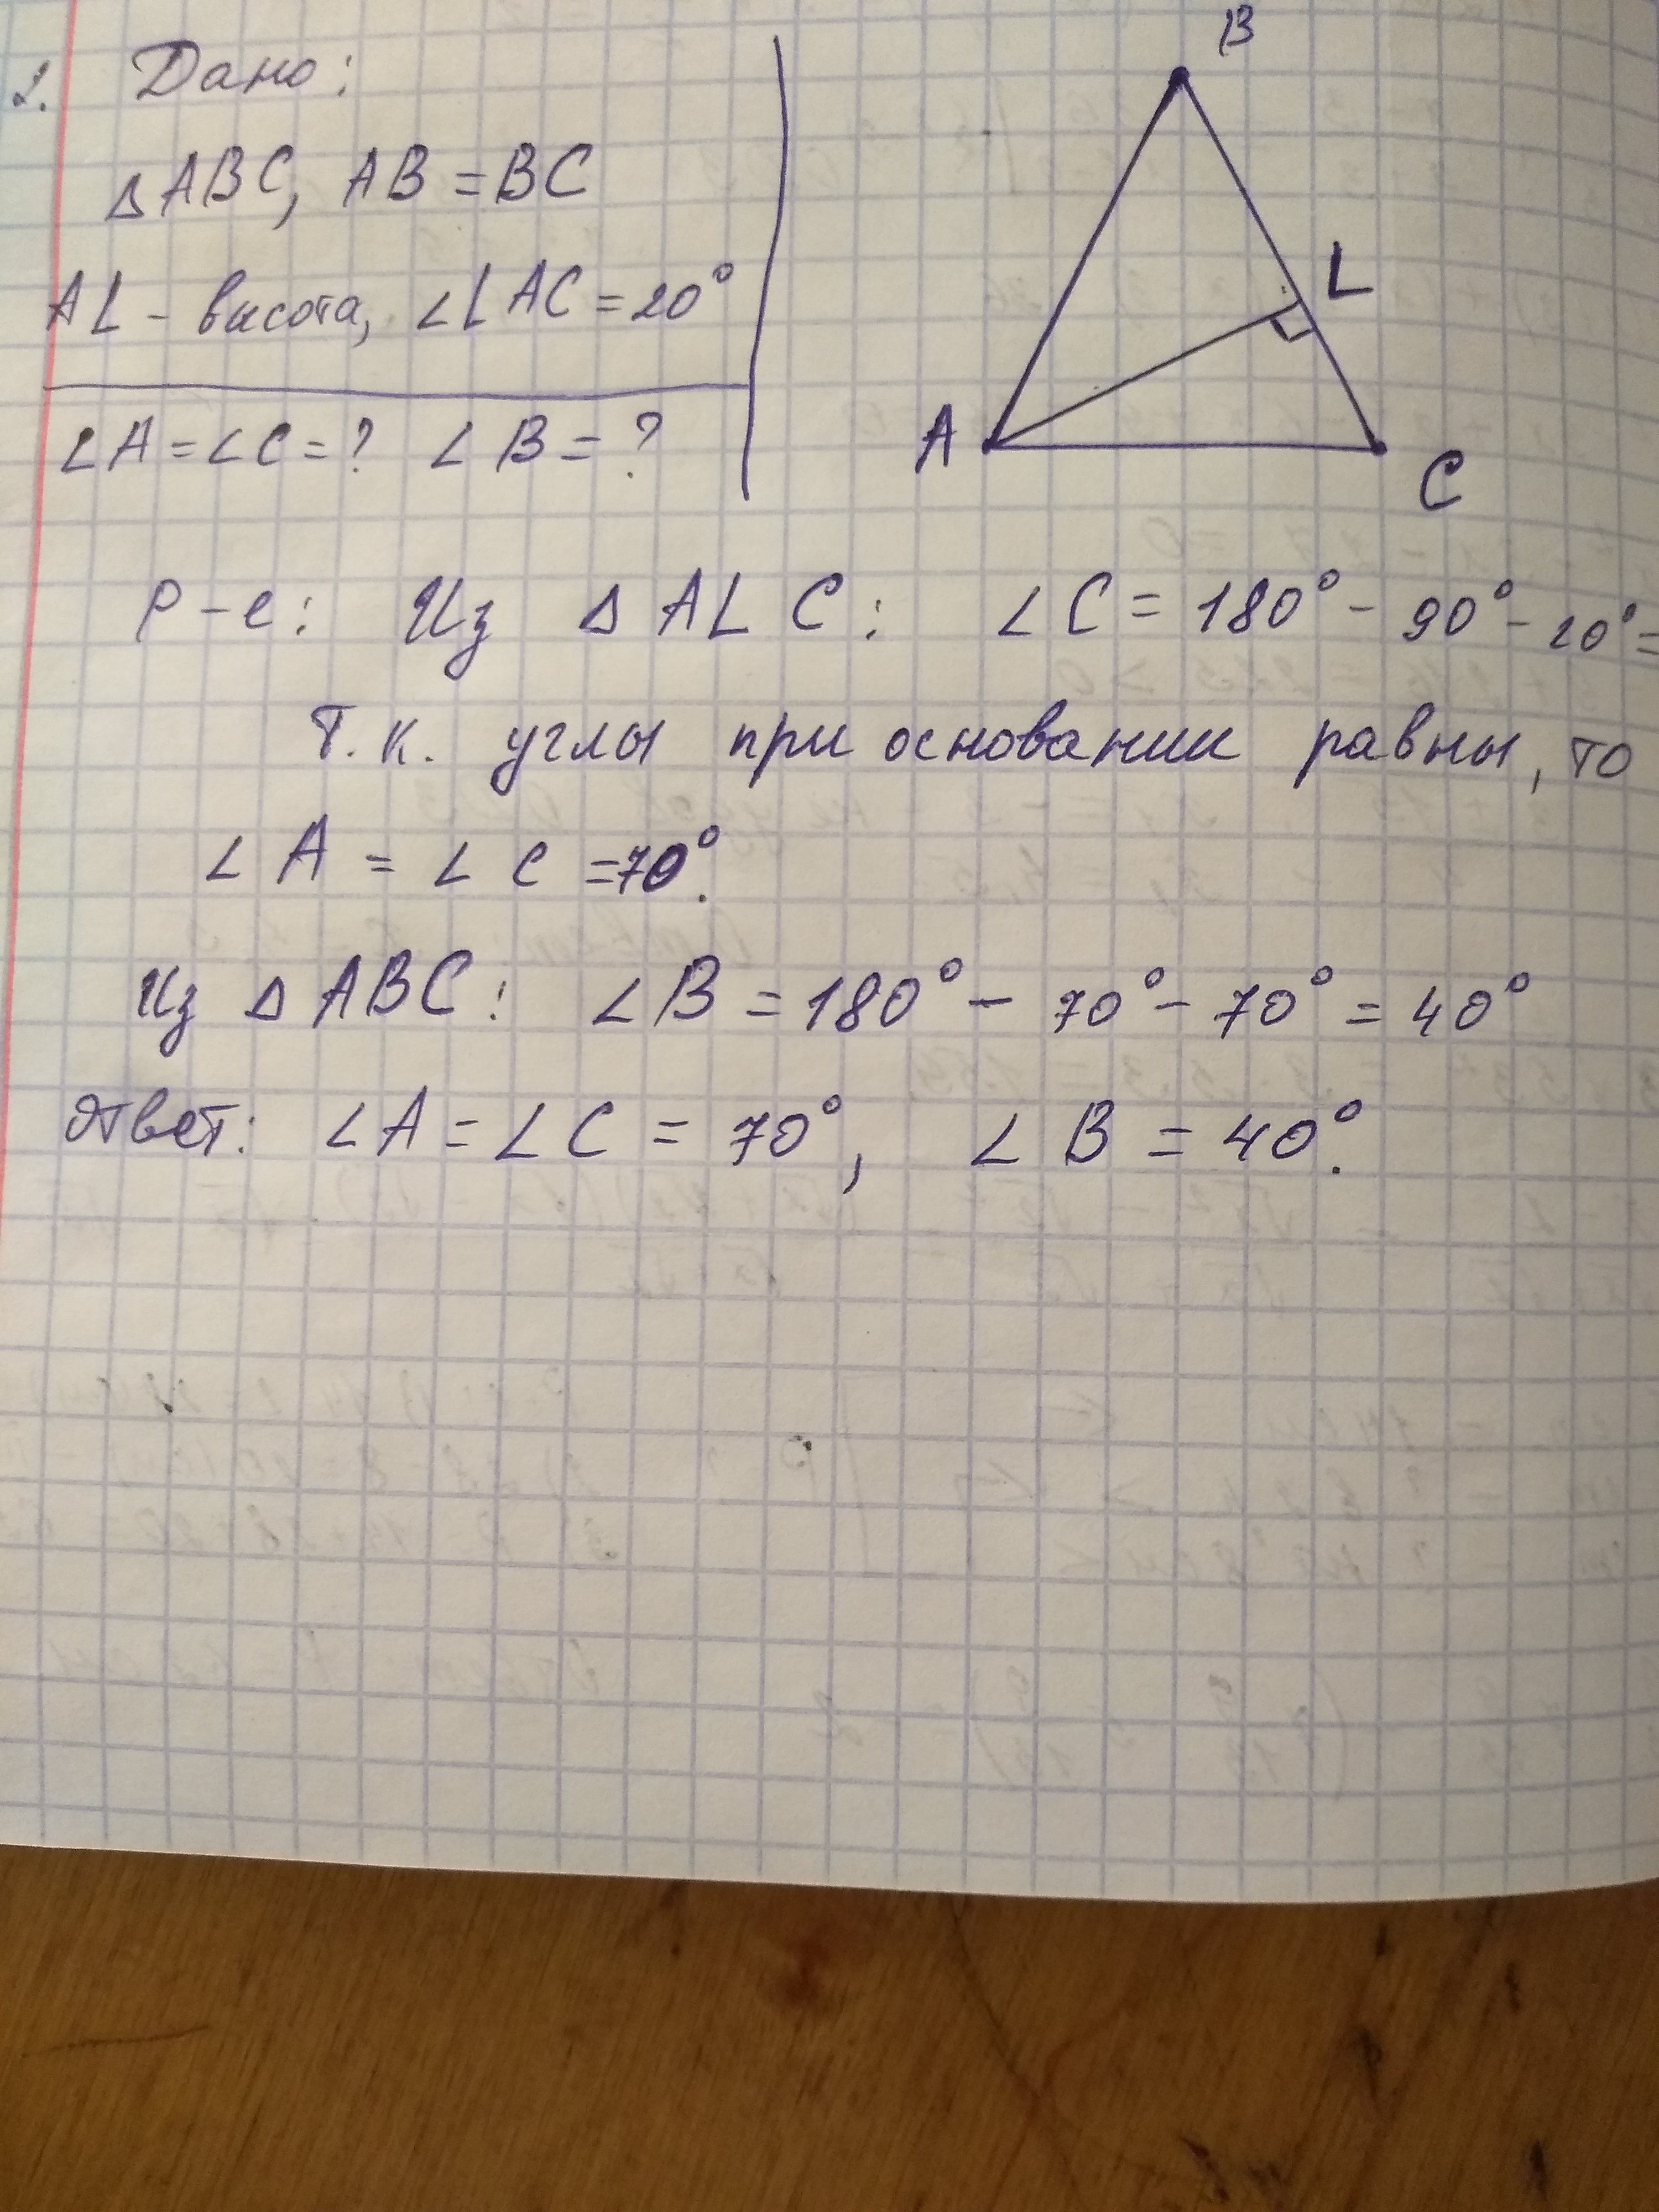 2. Дано:
△ABC, AB = BC
AL - высота, ∠LAC = 20°
∠A = ∠C = ? ∠B = ?
B
L
A
C
Р-е: Из △ALC: ∠C = 180° - 90° - 20° =
Т.к. углы при основании равны, то
∠A = ∠C = 70°.
Из △ABC: ∠B = 180° - 70° - 70° = 40°
Ответ: ∠A = ∠C = 70°, ∠B = 40°.